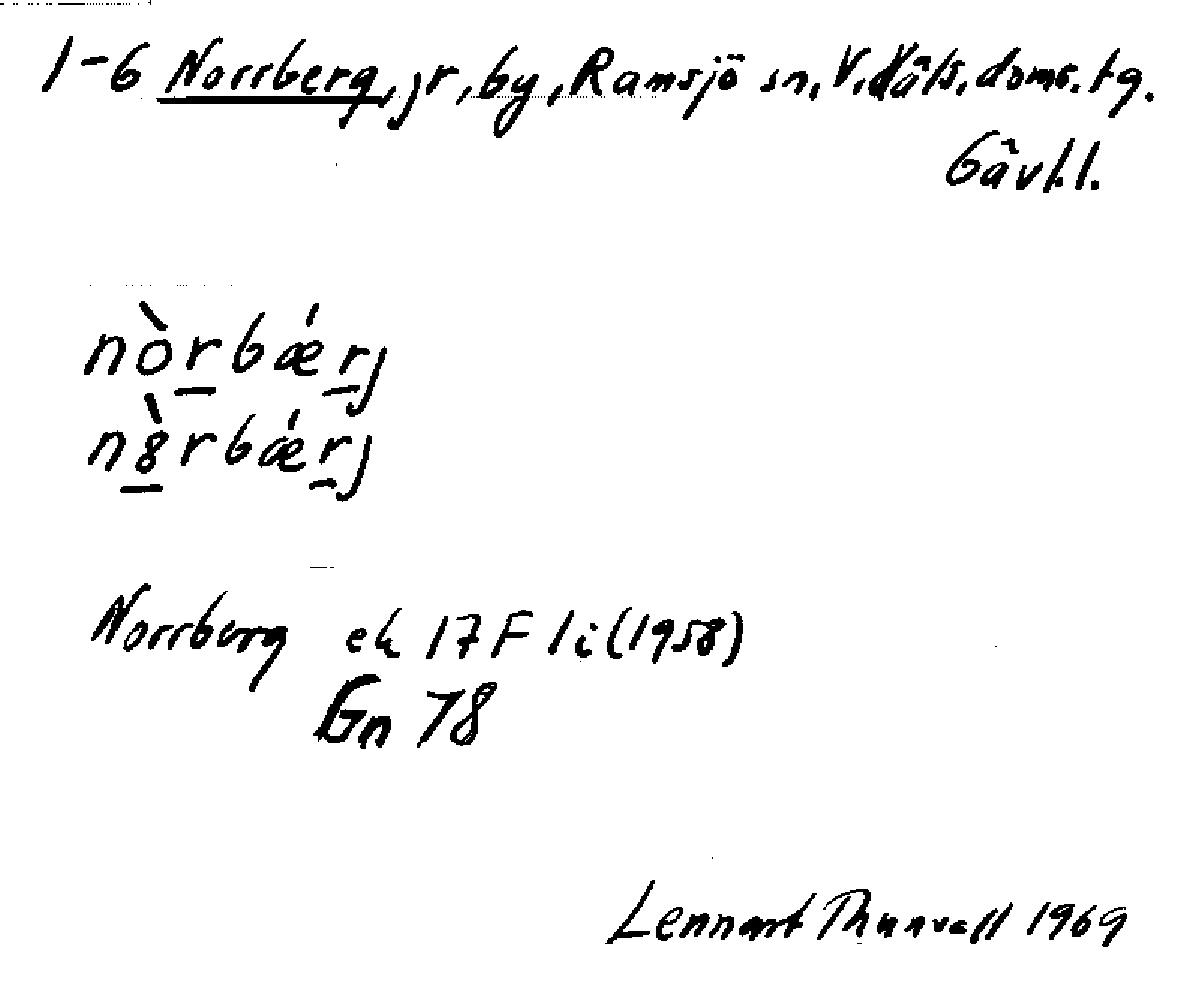 1-6 Norrberg, jr, by, Ramsjö sn, V. Häls. doms. tg.
Gävl.l.
nòrbǽrj
n8̀rbǽrj
Norrberg ek 17F li (1958)
Gn 78
Lennart Thunvall 1969